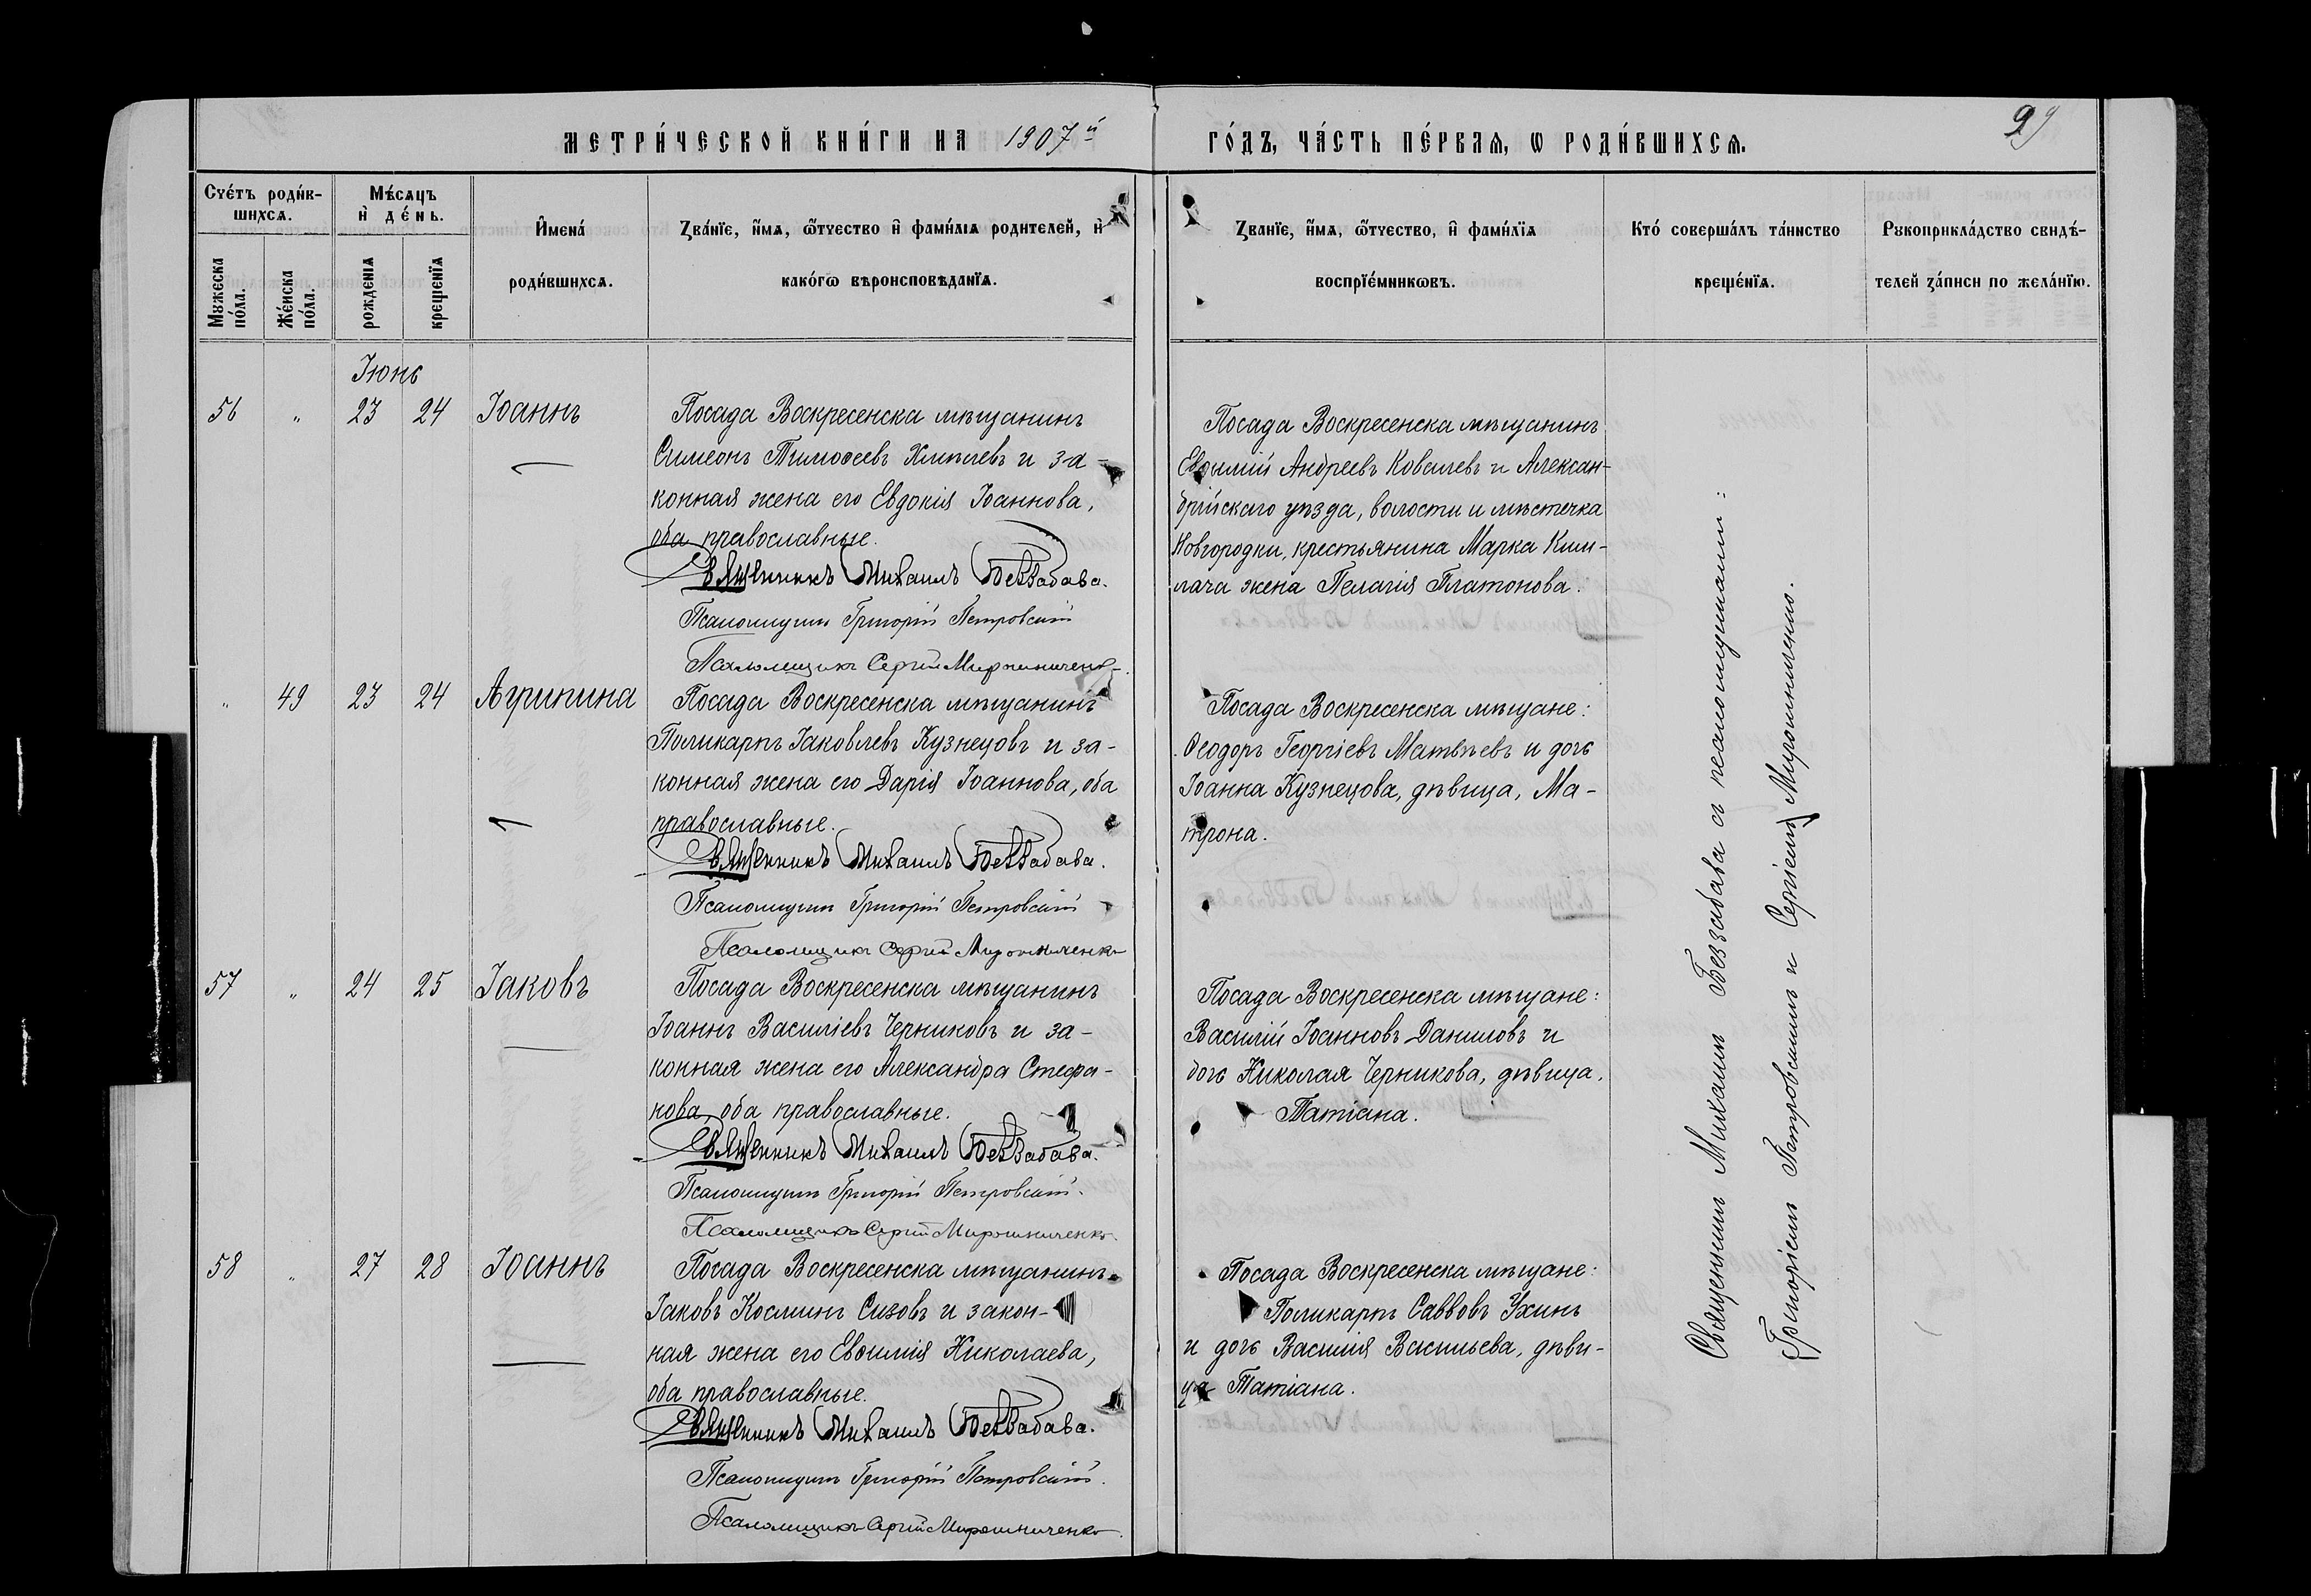 МЕТРИ́ЧЕСКОЙ КНИ́ГИ НА 1907й ГО́ДЪ, ЧА́СТЬ ПЕ́РВАЯ, Ѡ РОДИ́ВШИХСЯ.
29
Счétъ роди́в-
шихсѧ.
Мѣ́сѧцъ
и҆ де́нь.
Мꙋжеска
по́ла.
Же́нска
по́ла.
рожденїѧ
крещенїѧ
И҆мена́
роди́вшихсѧ.
Ꙁва́нїе, и҆́мѧ, ѻ҆́тчество и҆ фами́лїѧ родителей, и҆
како́гѡ вѣроисповѣданїѧ.
Ꙁванїе, и҆́мѧ, ѻ҆́тчество, и҆ фами́лїѧ
воспрїе́мникѡвъ.
Кто́ соверша́лъ та́инство
креще́нїѧ.
Рꙋкоприкла́дство свидѣ́-
телей ꙁа́писи по жела́нїю.
Іюнь
56 " 23 24 Іоаннъ
Посада Воскресенска мѣщанинъ
Симеонъ Тимоѳеевъ и за-
конная жена его Евдокія Іоаннова,
оба православные.
Священникъ Михаилъ Беззабава.
Псаломщикъ Григорій Петровскій
Псаломщикъ Сергій Мирошниченко.
Посада Воскресенска мѣщанинъ
Евѳимій Андреевъ Ковалевъ и Алексан-
дрійскаго уѣзда, волости и мѣстечка
Новгородки, крестьянина Марка Ким-
лача жена Пелагія Платонова.
" 49 23 24 Агрипина
Посада Воскресенска мѣщанинъ
Поликарпъ Іаковлевъ Кузнецовъ и за-
конная жена его Дарія Іоаннова, оба
православные.
Священникъ Михаилъ Беззабава.
Псаломщикъ Григорій Петровскій
Псаломщикъ Сергій Мирошниченко
Посада Воскресенска мѣщане:
Ѳеодоръ Георгіевъ Матвѣевъ и дочь
Іоанна Кузнецова, дѣвица, Ма-
трона.
57 " 24 25 Іаковъ
Посада Воскресенска мѣщанинъ
Іоаннъ Василіевъ Черниковъ и за-
конная жена его Александра Стефа-
нова, оба православные.
Священникъ Михаилъ Беззабава.
Псаломщикъ Григорій Петровскій.
Псаломщикъ Сергій Мирошниченко.
Посада Воскресенска мѣщане:
Василій Іоанновъ Даниловъ и
дочь Николая Черникова, дѣвица,
Татіана.
58 " 27 28 Іоаннъ
Посада Воскресенска мѣщанинъ
Іаковъ Косминъ Сизовъ и закон-
ная жена его Евѳимія Николаева,
оба православные.
Священникъ Михаилъ Беззабава.
Псаломщикъ Григорій Петровскій.
Псаломщикъ Сергій Мирошниченко.
Посада Воскресенска мѣщане:
Поликарпъ Саввовъ Ухинъ
и дочь Василія Васильева, дѣви-
ца Татіана.
Священникъ Михаилъ Беззабава съ псаломщиками:
Григоріемъ Петровскимъ и Сергіемъ Мирошниченко.